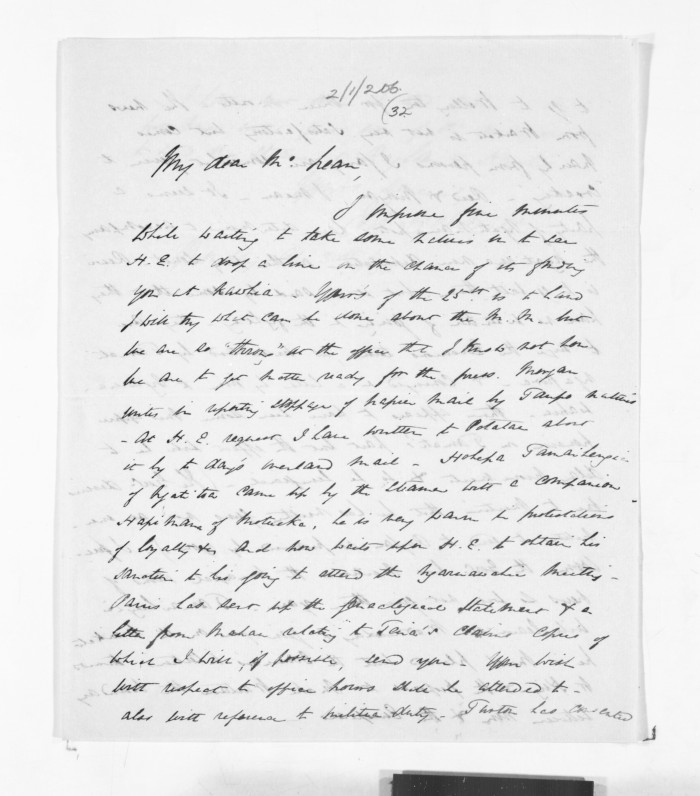 2/1/256.
(32
My dear Mc. Lean,
I improve five minutes
while waiting to take some natives in to see
H. E. to drop a line on the chance of its finding
you at Kawhia. Yours of the 25th is to hand
I will try what can be done about the M. M. but
we are so "throng" at the office that I know not how
we are to get matter ready for the press. Morgan
writes in reporting stoppage of Napier Mail by Taupo natives
- At H. E. request I have written to Potatau about
it by to day's overland mail - Hohepa Tamaihengia
of Ngatitoa came up by the steamer with a companion
Hapimana of Motueka, he is very warm in protestations
of loyalty &c and now waits upon H. E. to obtain his
sanction to his going to attend the Ngaruawahia Meeting -
Parris has sent up the genealogical statement & a
letter from Mahau relating to Teira's claims copies of
which I will, if possible, send you - Your wish
with respect to office hours shall be attended to -
also with reference to militia duty - Turton has